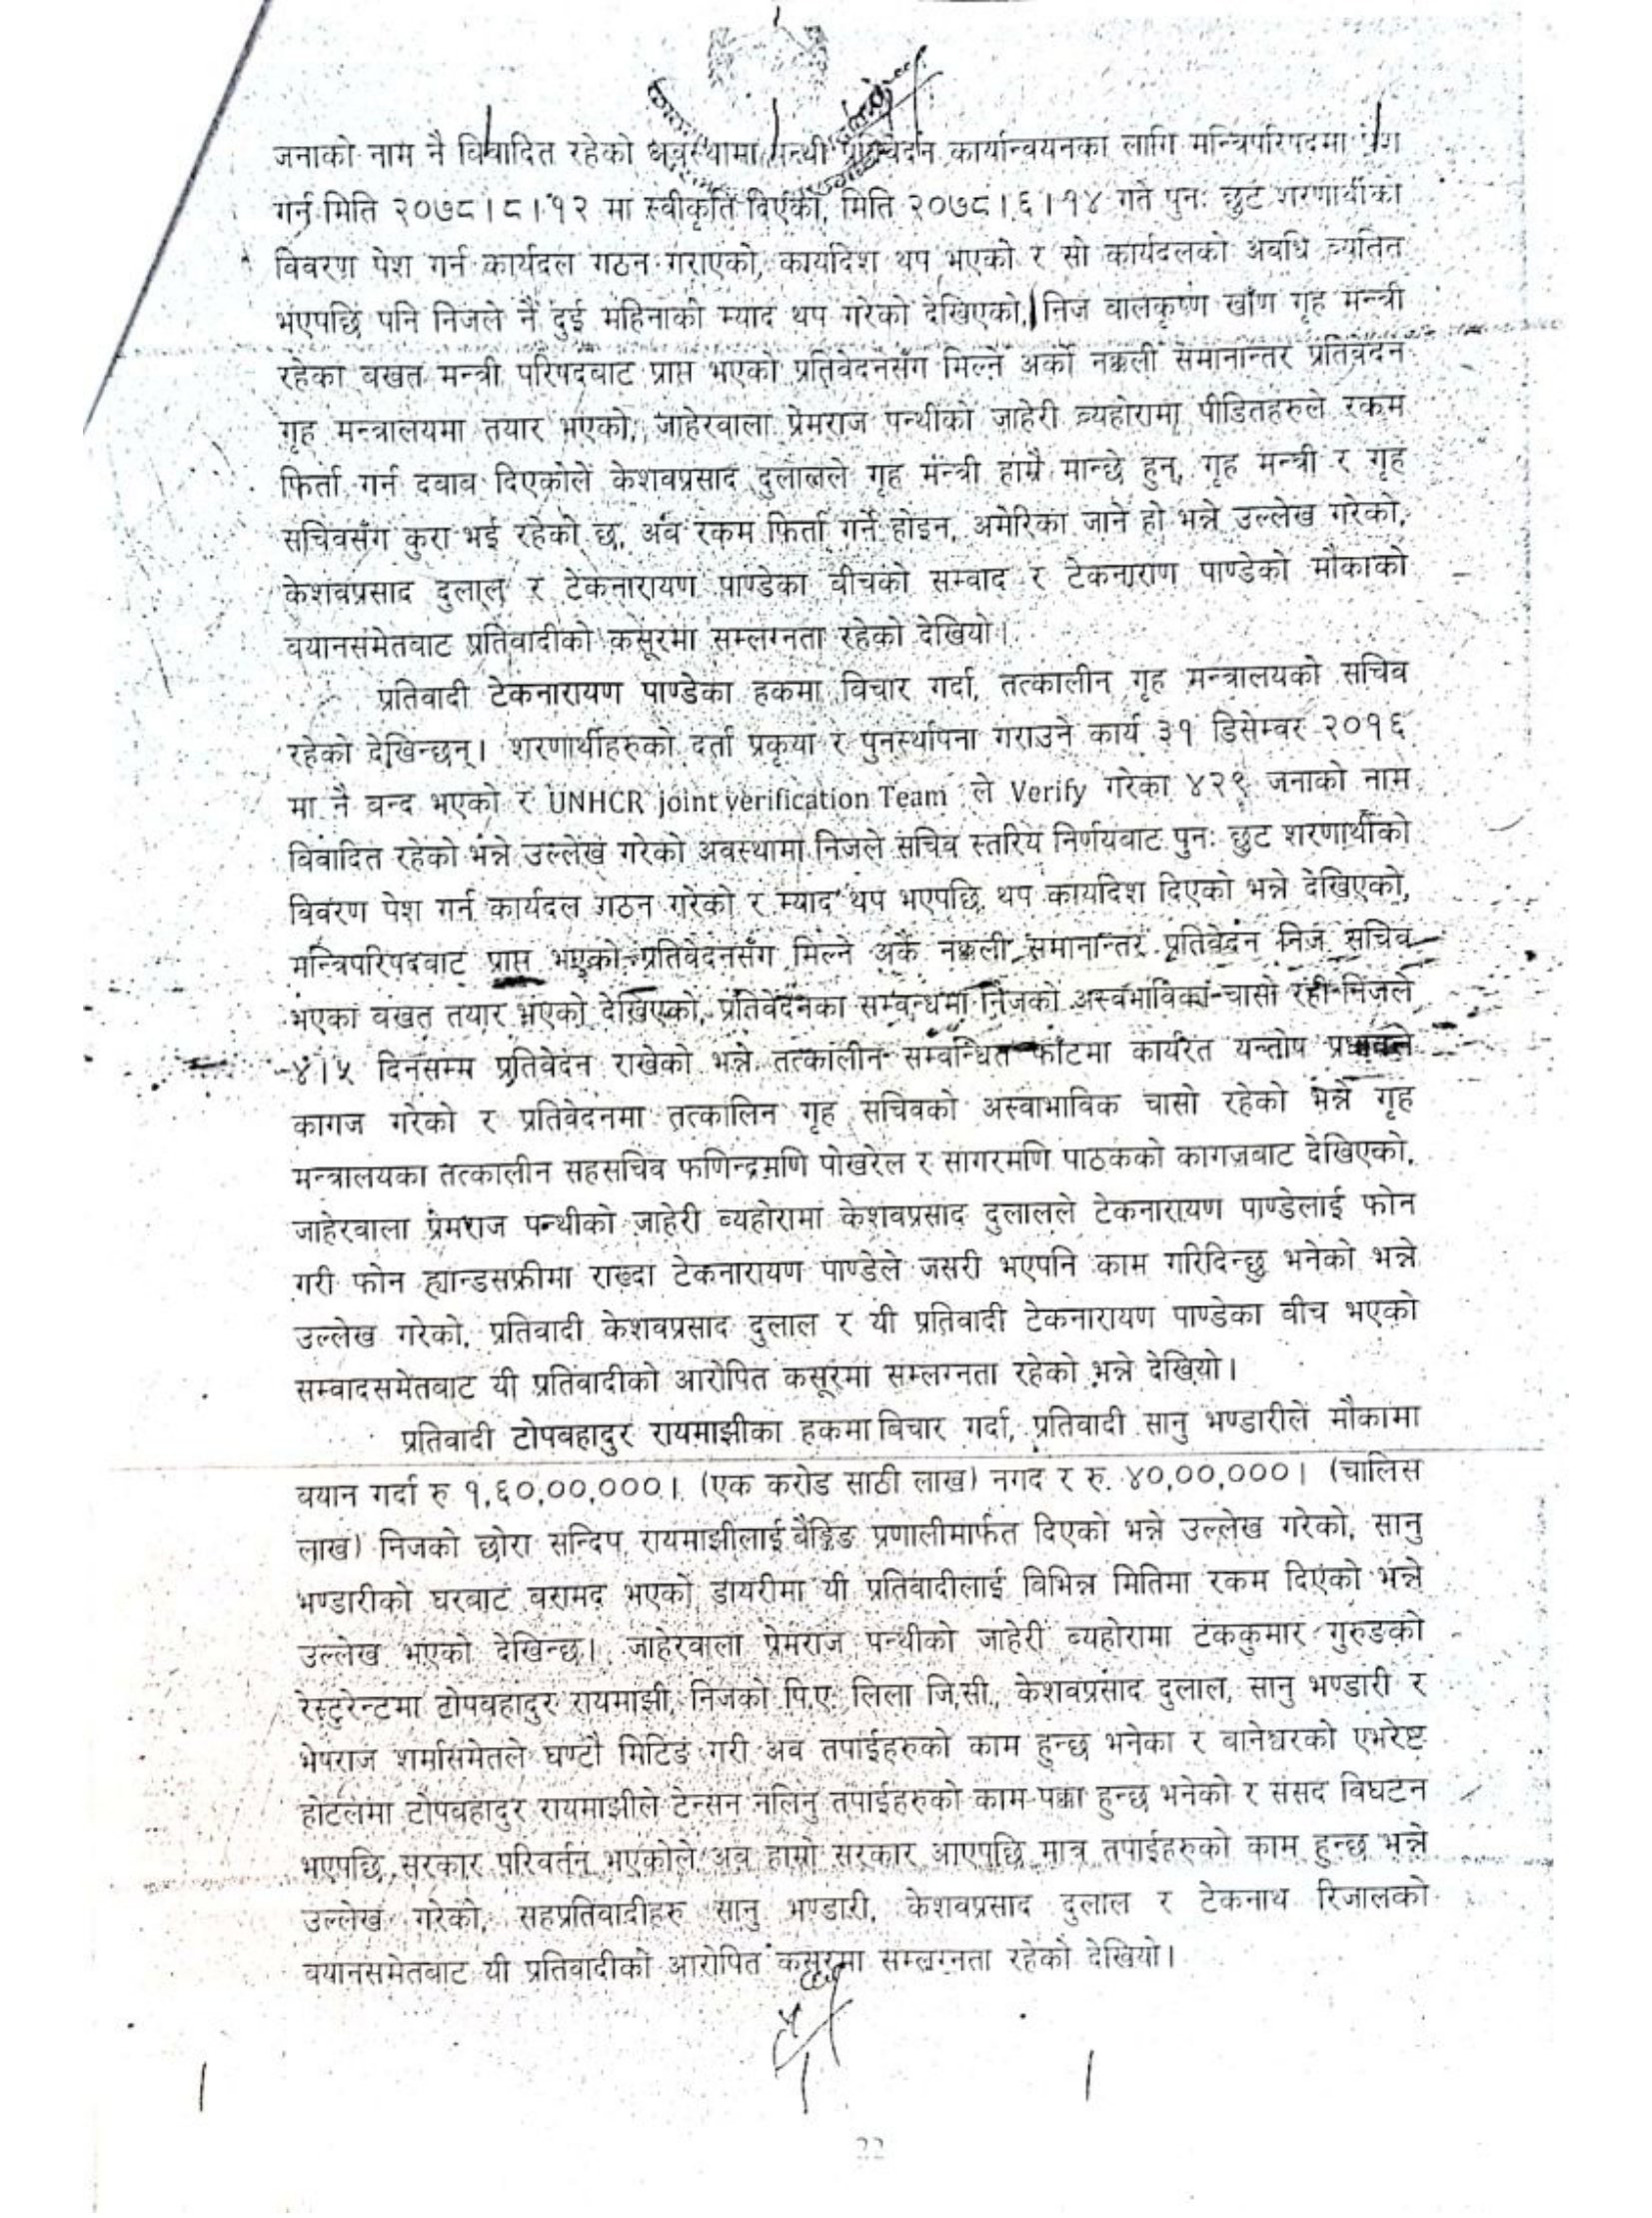 जनाको नाम नै विवादित रहेको अवस्थामा पन्थी प्रतिवेदन कार्यान्वयनका लागि मन्त्रिपरिषदमा पेश
गर्न मिति २०७८।८।१२ मा स्वीकृति दिएको, मिति २०७८।६।१४ गते पुनः छुट शरणार्थीका
विवरण पेश गर्न कार्यदल गठन गराएको, कार्यादेश थप भएको र सो कार्यदलको अवधि व्यतित
भएपछि पनि निजले नै दुई महिनाको म्याद थप गरेको देखिएको, निज वालकृष्ण खाँण गृह मन्त्री
रहेका वखत मन्त्री परिषदबाट प्राप्त भएको प्रतिवेदनसँग मिल्ने अर्को नक्कली समानान्तर प्रतिवेदन
गृह मन्त्रालयमा तयार भएको, जाहेरवाला प्रेमराज पन्थीको जाहेरी व्यहोरामा पीडितहरुले रकम
फिर्ता गर्न दवाव दिएकोले केशवप्रसाद दुलालले गृह मंन्त्री हाम्रै मान्छे हुन्, गृह मन्त्री र गृह
सचिवसँग कुरा भई रहेको छ, अव रकम फिर्ता गर्ने होइन, अमेरिका जाने हो भन्ने उल्लेख गरेको,
केशवप्रसाद दुलाल र टेकनारायण पाण्डेका वीचको सम्वाद र टेकनाराण पाण्डेको मौकाको
वयानसमेतवाट प्रतिवादीको कसूरमा सम्लग्नता रहेको देखियो।
प्रतिवादी टेकनारायण पाण्डेका हकमा विचार गर्दा, तत्कालीन गृह मन्त्रालयको सचिव
रहेको देखिन्छन्। शरणार्थीहरुको दर्ता प्रकृया र पुनर्स्थापना गराउने कार्य ३१ डिसेम्वर २०१६
मा नै वन्द भएको र UNHCR joint verification Team ले Verify गरेका ४२९ जनाको नाम
विवादित रहेको भन्ने उल्लेख गरेको अवस्थामा निजले सचिव स्तरिय निर्णयवाट पुनः छुट शरणार्थीको
विवरण पेश गर्न कार्यदल गठन गरेको र म्याद थप भएपछि थप कार्यादेश दिएको भन्ने देखिएको,
मन्त्रिपरिषदवाट प्राप्त भएको प्रतिवेदनसँग मिल्ने अर्कै नक्कली समानान्तर प्रतिवेदन निज सचिव
भएका वखत तयार भएको देखिएको, प्रतिवेदनका सम्वन्धमा निजको अस्वभाविका चासो रही निजले
४।५ दिनसम्म प्रतिवेदन राखेको भन्ने तत्कालीन सम्वन्धित फाँटमा कार्यरत यन्तोष प्रधानले
कागज गरेको र प्रतिवेदनमा तत्कालिन गृह सचिवको अस्वाभाविक चासो रहेको भन्ने गृह
मन्त्रालयका तत्कालीन सहसचिव फणिन्द्रमणि पोखरेल र सागरमणि पाठकको कागजबाट देखिएको,
जाहेरवाला प्रेमराज पन्थीको जाहेरी व्यहोरामा केशवप्रसाद दुलालले टेकनारायण पाण्डेलाई फोन
गरी फोन ह्यान्डसफ्रीमा राख्दा टेकनारायण पाण्डेले जसरी भएपनि काम गरिदिन्छु भनेको भन्ने
उल्लेख गरेको, प्रतिवादी केशवप्रसाद दुलाल र यी प्रतिवादी टेकनारायण पाण्डेका वीच भएको
सम्वादसमेतवाट यी प्रतिवादीको आरोपित कसूरमा सम्लग्नता रहेको भन्ने देखियो।
प्रतिवादी टोपवहादुर रायमाझीका हकमा बिचार गर्दा, प्रतिवादी सानु भण्डारीले मौकामा
वयान गर्दा रु १,६०,००,०००। (एक करोड साठी लाख) नगद र रु. ४०,००,०००। (चालिस
लाख) निजको छोरा सन्दिप रायमाझीलाई बैङ्किङ प्रणालीमार्फत दिएको भन्ने उल्लेख गरेको, सानु
भण्डारीको घरबाट वरामद भएको डायरीमा यी प्रतिवादीलाई विभिन्न मितिमा रकम दिएको भन्ने
उल्लेख भएको देखिन्छ। जाहेरवाला प्रेमराज पन्थीको जाहेरी व्यहोरामा टंककुमार गुरुङको
रेस्टुरेन्टमा टोपवहादुर रायमाझी, निजको पि.ए. लिला जि.सी., केशवप्रसाद दुलाल, सानु भण्डारी र
भेषराज शर्मासमेतले घण्टौ मिटिङ गरी अव तपाईहरुको काम हुन्छ भनेका र वानेश्वरको एभरेष्ट
होटलमा टोपवहादुर रायमाझीले टेन्सन नलिनु तपाईहरुको काम पक्का हुन्छ भनेको र संसद विघटन
भएपछि सरकार परिवर्तन भएकोले अव हाम्रो सरकार आएपछि मात्र तपाईहरुको काम हुन्छ भन्ने
उल्लेख गरेको, सहप्रतिवादीहरु सानु भण्डारी, केशवप्रसाद दुलाल र टेकनाथ रिजालको
वयानसमेतवाट यी प्रतिवादीको आरोपित कसूरमा सम्लग्नता रहेको देखियो।
22